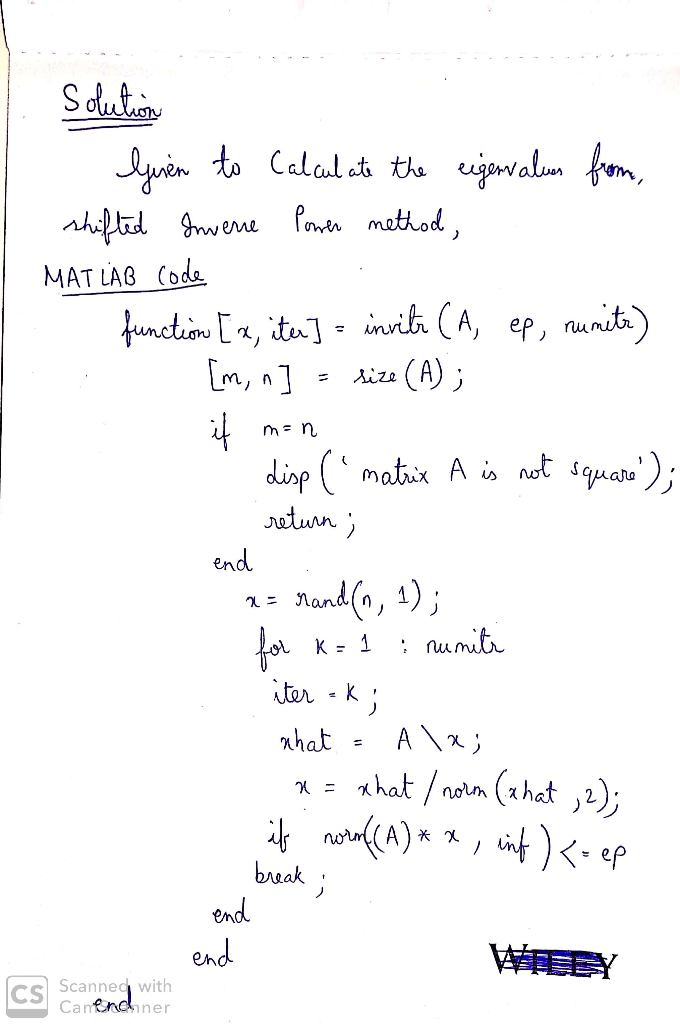 Solution
Given to Calculate the eigenvalues from,
shifted Inverse Power method,
MATLAB Code
function [x, iter] = invitr (A, ep, numitr)
[m, n] = size (A) ;
if m = n
disp (' matrix A is not square');
return ;
end
x = rand(n, 1) ;
for k = 1 : numitr
iter = k ;
xhat = A \ x ;
x = xhat / norm (xhat ,2);
if norm((A) * x , inf ) <= ep
break ;
end
end
end
WILEY
CS Scanned with
CamScanner